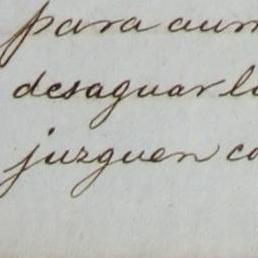 para aum
desaguar lo
juzguen co